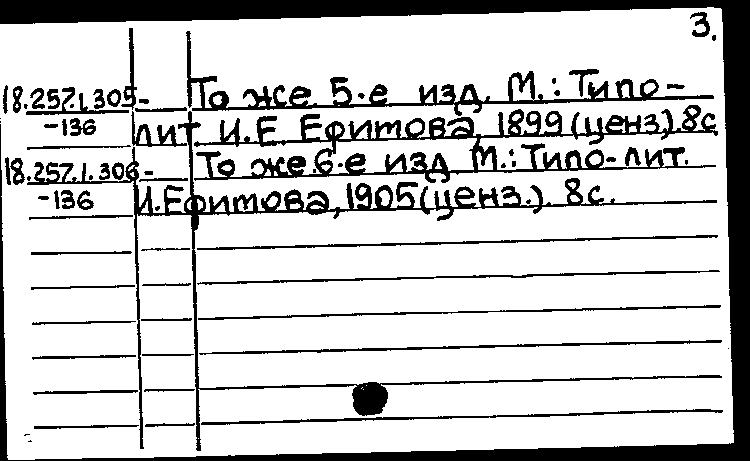 3.
18.257.1.305- То же 5-е изд. М.: Типо-
-136 лит. И.Е. Ефитова, 1899 (ценз). 8с.
18.257.1.306- То же 6-е изд. М.: Типо-лит.
-136 И.Ефитова, 1905 (ценз.). 8с.